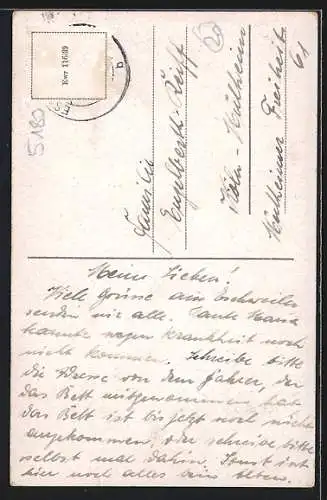 Kwr 116/39
b
5180
20
Familie
Engelbert Rüff
Köln-Mülheim
Mülheimer Freiheit
61
Meine Lieben!
Viele Grüsse aus Eschweiler
senden wir alle. Tante Maria
konnte wegen Krankheit noch
nicht kommen. Schreibe bitte
die Adresse von dem Fahrer, der
das Bett mitgenommen hat
das Bett ist bis jetzt noch nicht
angekommen, oder schreibe bitte
selbst mal dahin. Sonst ist
hier noch alles beim Alten.